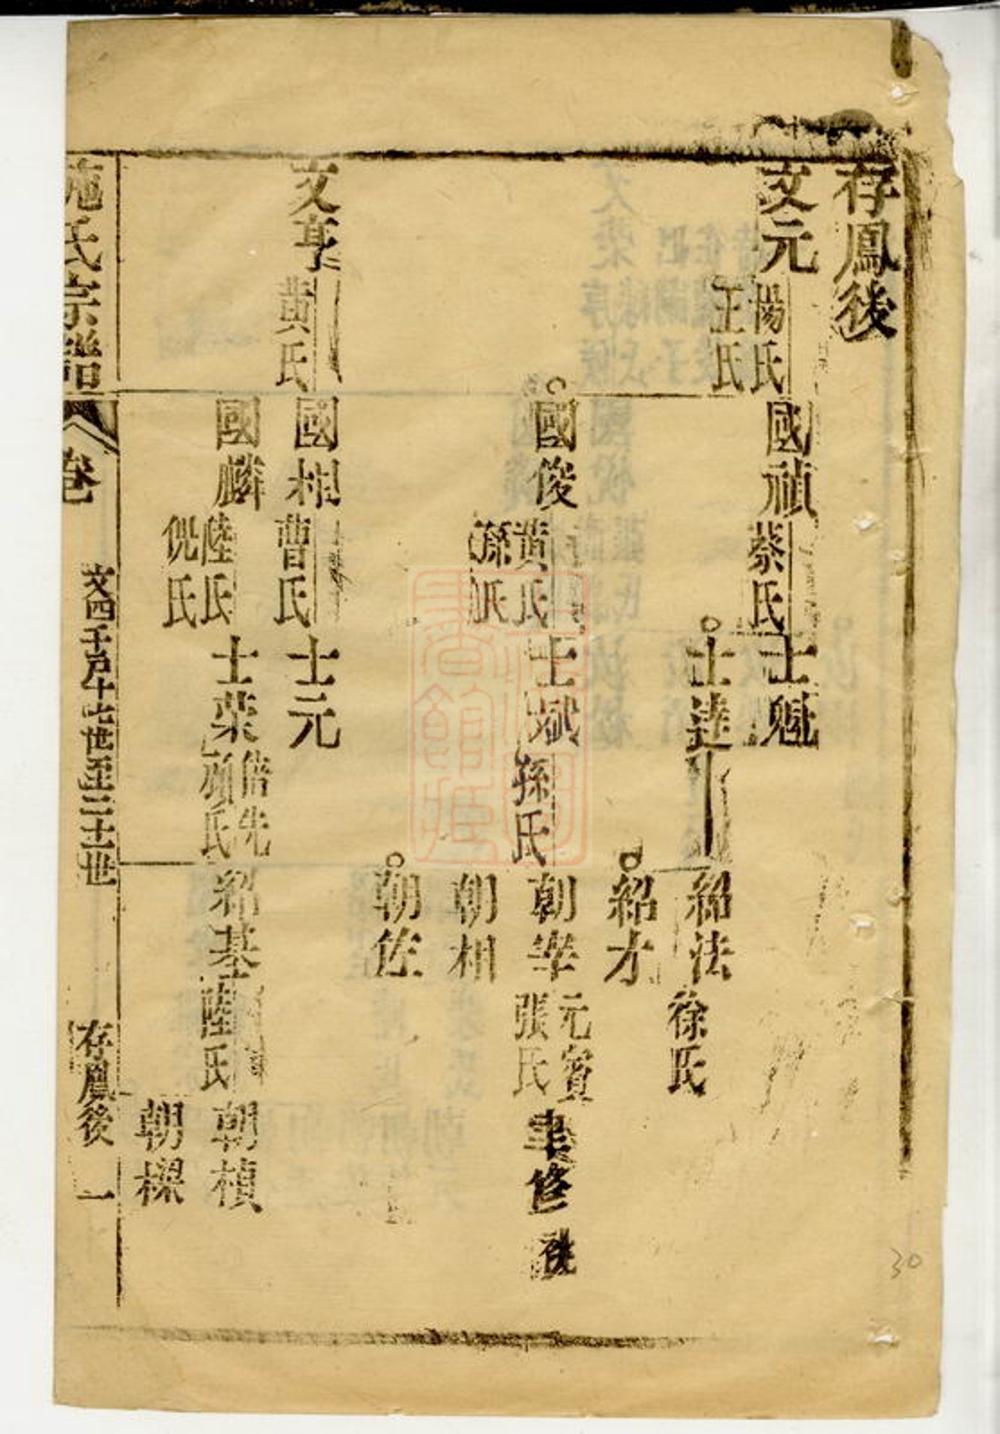 存鳳後
文元 楊氏 王氏
國禎 蔡氏
士魁
士達
紹法 徐氏
紹才
國俊 黄氏 孫氏
士斌 孫氏
朝宰 元賓 張氏
朝相
朝佐
文亨 黄氏
國相 曹氏
士元
國麟 陸氏 倪氏
士荣 倍先 顧氏
紹基 陸氏
朝楨
朝樑
施氏宗譜
卷
文四千戶十七世至二十世
存鳳後 一
30